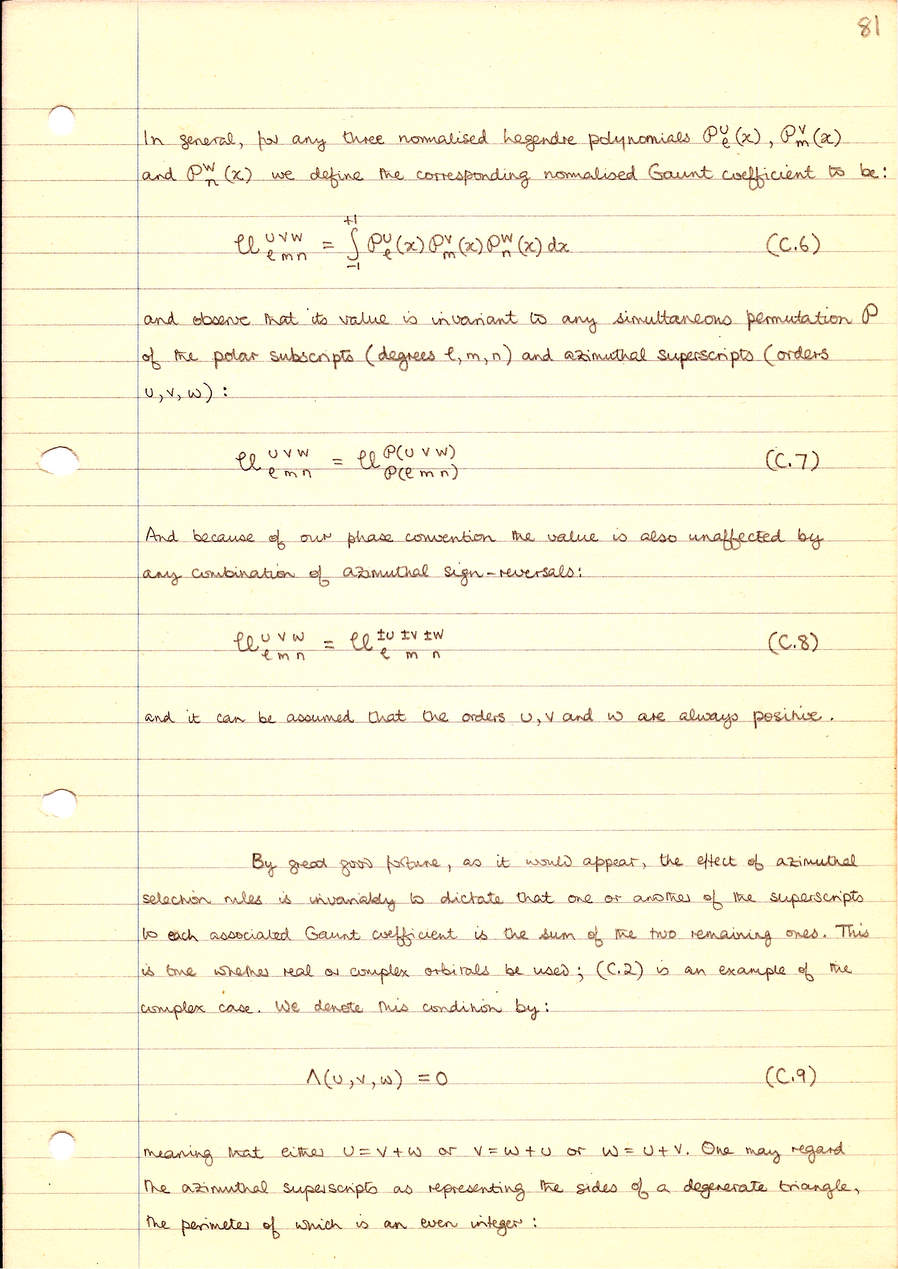 81
In general, for any three normalised Legendre polynomials 𝒫ᵁ_ℓ(x), 𝒫ⱽ_m(x)
and 𝒫ᵂ_n(x) we define the corresponding normalised Gaunt coefficient to be:
𝒰^{U V W}_{ℓ m n} = ∫_{-1}^{+1} 𝒫ᵁ_ℓ(x) 𝒫ⱽ_m(x) 𝒫ᵂ_n(x) dx (C.6)
and observe that its value is invariant to any simultaneous permutation P
of the polar subscripts (degrees ℓ, m, n) and azimuthal superscripts (orders
U, V, W) :
𝒰^{U V W}_{ℓ m n} = 𝒰^{P(U V W)}_{P(ℓ m n)} (C.7)
And because of our phase convention the value is also unaffected by
any combination of azimuthal sign-reversals:
𝒰^{U V W}_{ℓ m n} = 𝒰^{±U ±V ±W}_{ℓ m n} (C.8)
and it can be assumed that the orders U, V and W are always positive.
By great good fortune, as it would appear, the effect of azimuthal
selection rules is invariably to dictate that one or another of the superscripts
to each associated Gaunt coefficient is the sum of the two remaining ones. This
is true whether real or complex orbitals be used; (C.2) is an example of the
complex case. We denote this condition by:
Λ(U, V, W) = 0 (C.9)
meaning that either U = V + W or V = W + U or W = U + V. One may regard
the azimuthal superscripts as representing the sides of a degenerate triangle,
the perimeter of which is an even integer :